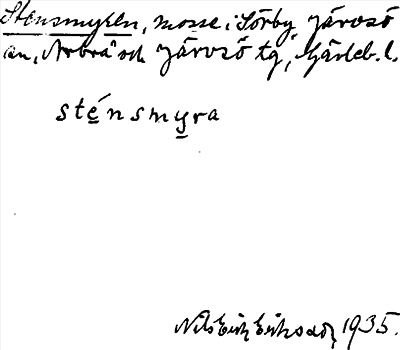 Stensmyren, mosse i Sörby, Järvsö
an, Arbrå och Järvsö tg, Gävleb. l.
sténsmyra
Nils Erik Eriksson 1935.